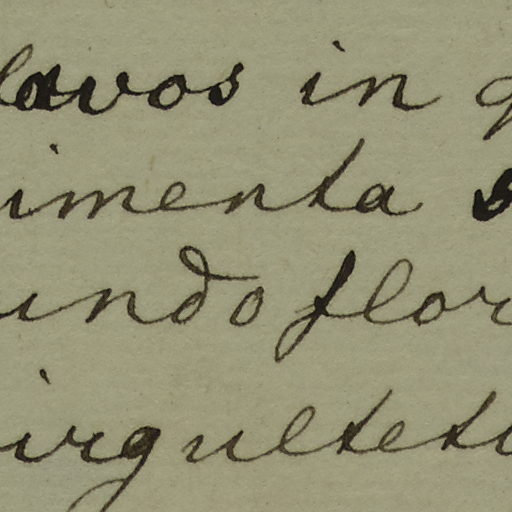 lavos in
imenta
undo flor
irgulteti